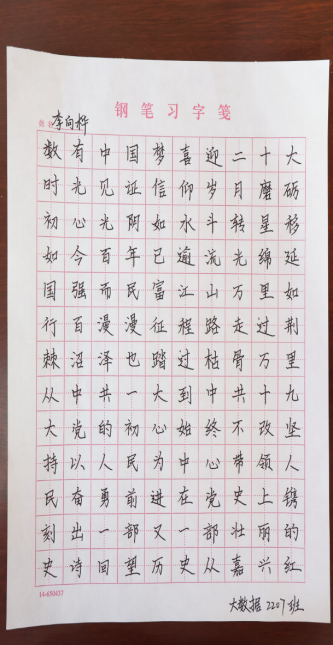 钢笔习字笺
姓名 李向桦
数有中国梦喜迎二十大
时光见证信仰岁月磨砺
初心光阴如水斗转星移
如今百年已逾流光绵延
国强而民富江山万里如
行百漫漫征程路走过荆
棘沼泽也踏过枯骨万里
从中共一大到中共十九
大党的初心始终不改坚
持以人民为中心带领人
民奋勇前进在党史上镌
刻出一部又一部壮丽的
史诗回望历史从嘉兴红
14-650437
大数据2207班